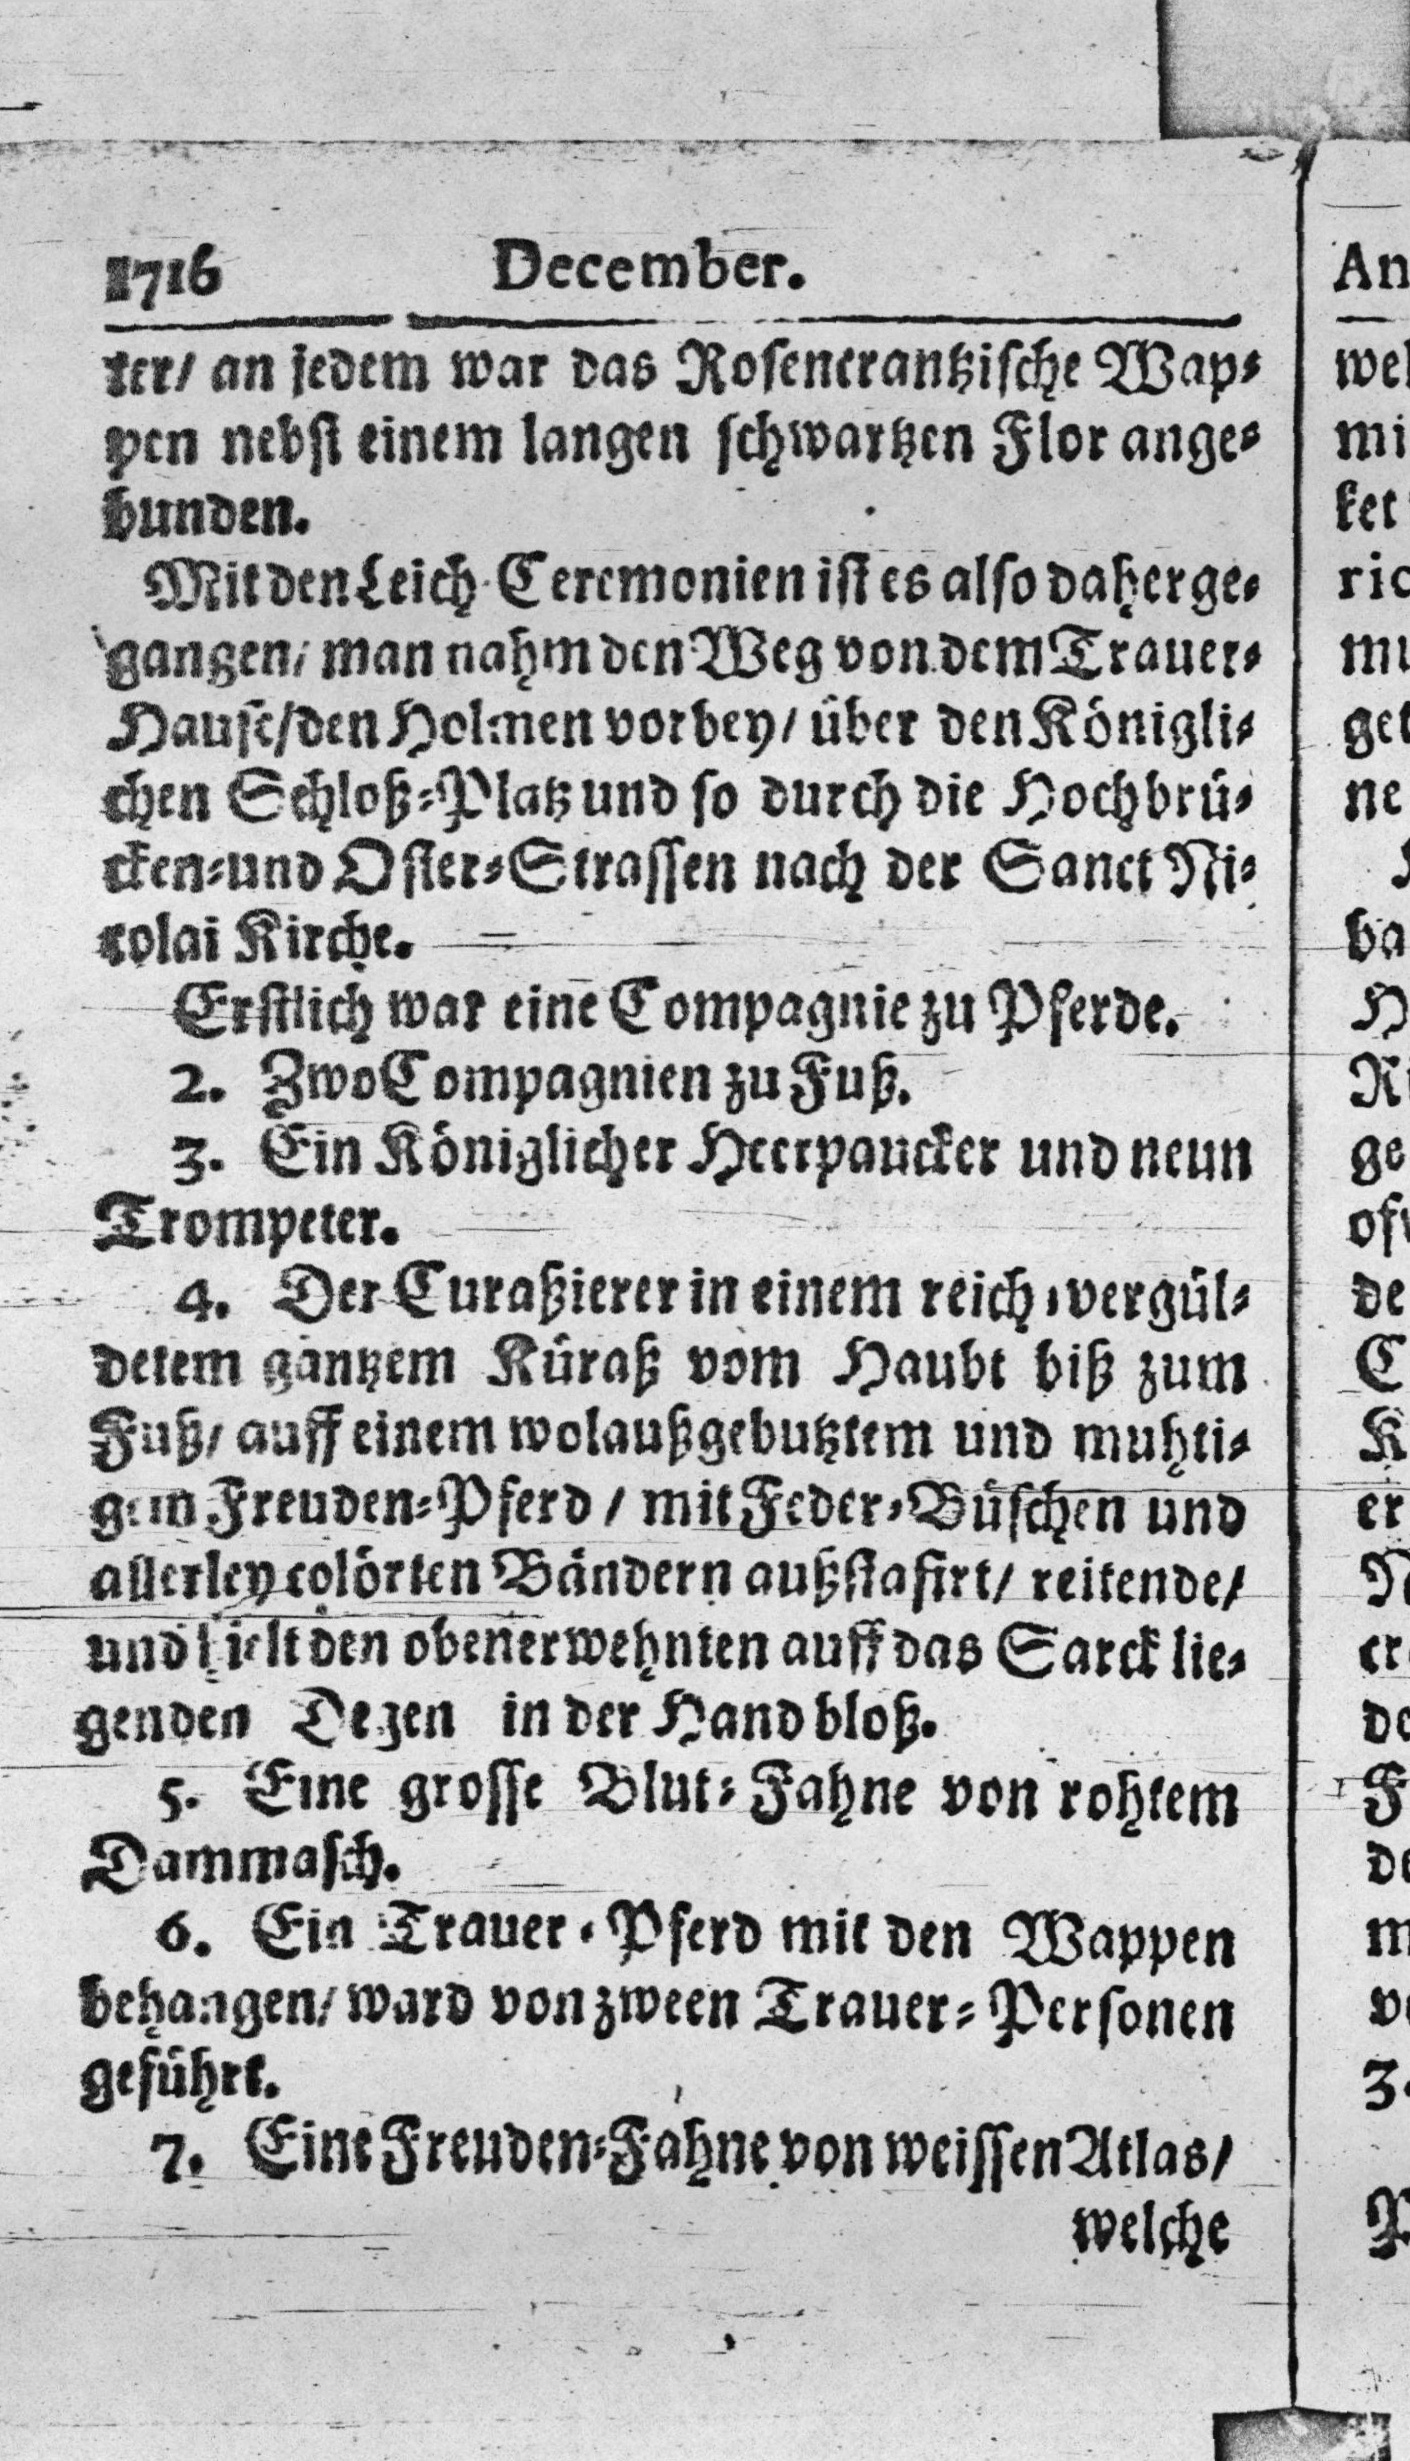 1716 December.
ter/ an jedem war das Rosencrantzische Wap-
pen nebst einem langen schwartzen Flor ange-
bunden.
Mit den Leich-Ceremonien ist es also daher ge-
gangen/ man nahm den Weg von dem Trauer-
Hause/ den Holmen vorbey/ über den Königli-
chen Schloß-Platz und so durch die Hochbrü-
cken-und Oster-Strassen nach der Sanct Ni-
colai Kirche.
Erstlich war eine Compagnie zu Pferde.
2. Zwo Compagnien zu Fuß.
3. Ein Königlicher Heerpaucker und neun
Trompeter.
4. Der Curaßierer in einem reich-vergül-
detem gantzem Küraß vom Haubt biß zum
Fuß/ auff einem wolaußgebutztem und muhti-
gem Freuden-Pferd / mit Feder-Büschen und
allerley colörten Bändern außstafirt/ reitende/
und hielt den obenerwehnten auff das Sarck lie-
genden Degen in der Hand bloß.
5. Eine grosse Blut-Fahne von rohtem
Dammasch.
6. Ein Trauer-Pferd mit den Wappen
behangen/ ward von zween Trauer-Personen
geführt.
7. Eine Freuden-Fahne von weissen Atlas/
welche